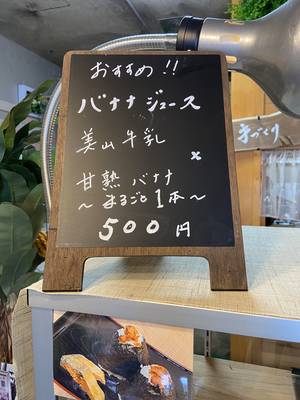 おすすめ!!
バナナジュース
美山牛乳
×
甘熟バナナ
～まるごと1本～
500円
手づくり